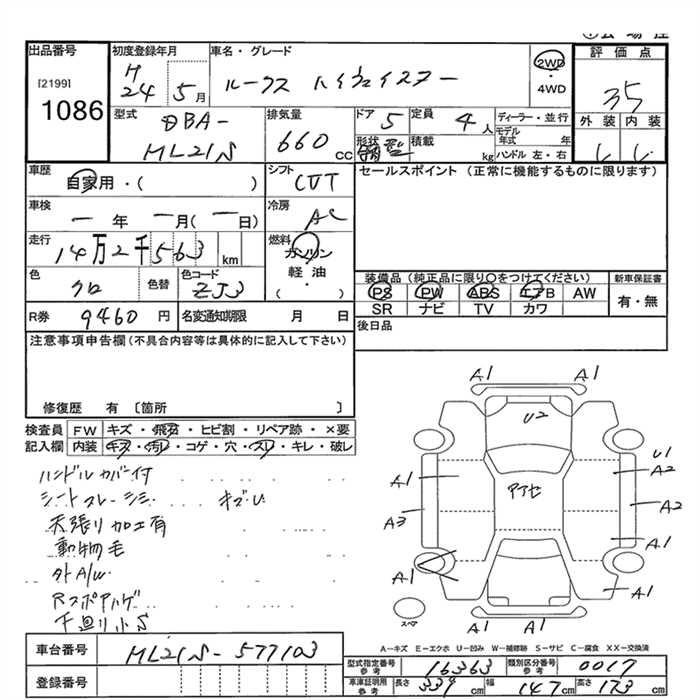 出品番号
[2199]
1086
初度登録年月
H
24 5月
車名・グレード
ルークス ハイウェイスター
2WD
・
4WD
評価点
35
外装 内装
型式
DBA-
ML21S
排気量
660 CC
ドア 5
定員 4人
ディーラー・並行
モデル年式 年
形状
積載 kg
ハンドル 左・右
車歴
自家用・( )
シフト
CVT
セールスポイント (正常に機能するものに限ります)
車検
一年 一月(一日)
冷房
AC
走行
14万2千563 km
燃料
ガソリン
軽油
・
( )
色
クロ
色替
色コード
ZJ3
装備品(純正品に限り〇をつけてください)
新車保証書
PS PW ABS エアB AW
有・無
SR ナビ TV カワ
R券 9460 円
名変通知期限 月 日
後日品
注意事項申告欄(不具合内容等は具体的に記入して下さい)
修復歴 有〔箇所 〕
検査員 FW キズ・飛石・ヒビ割・リペア跡・×要
記入欄 内装 キズ・汚レ・コゲ・穴・スレ・キレ・破レ
ハンドルカバー付
シートスレ・シミ キズU
天張り加工有
動物毛
外A/W
Rスポアルゲ
下廻り小S
A1 A1
U2
U1
A1 A2
アアセ
A3 A2
A1
A1 A1
A1 A1
スペア
A-キズ E-エクボ U-凹み W-補修跡 S-サビ C-腐食 XX-交換済
車台番号 ML21S-577103
登録番号
型式指定番号 参考 16363
類別区分番号 参考 0017
車庫証明用 参考 長さ 339 cm 幅 147 cm 高さ 173 cm